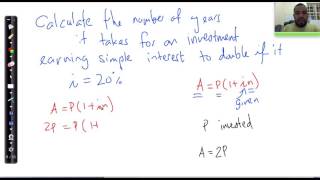 Calculate the number of years
it takes for an investment
earning simple interest to double if it
i = 20%
A = P(1+in)
2P = P(1+
A = P(1+in)
given
P invested
A = 2P